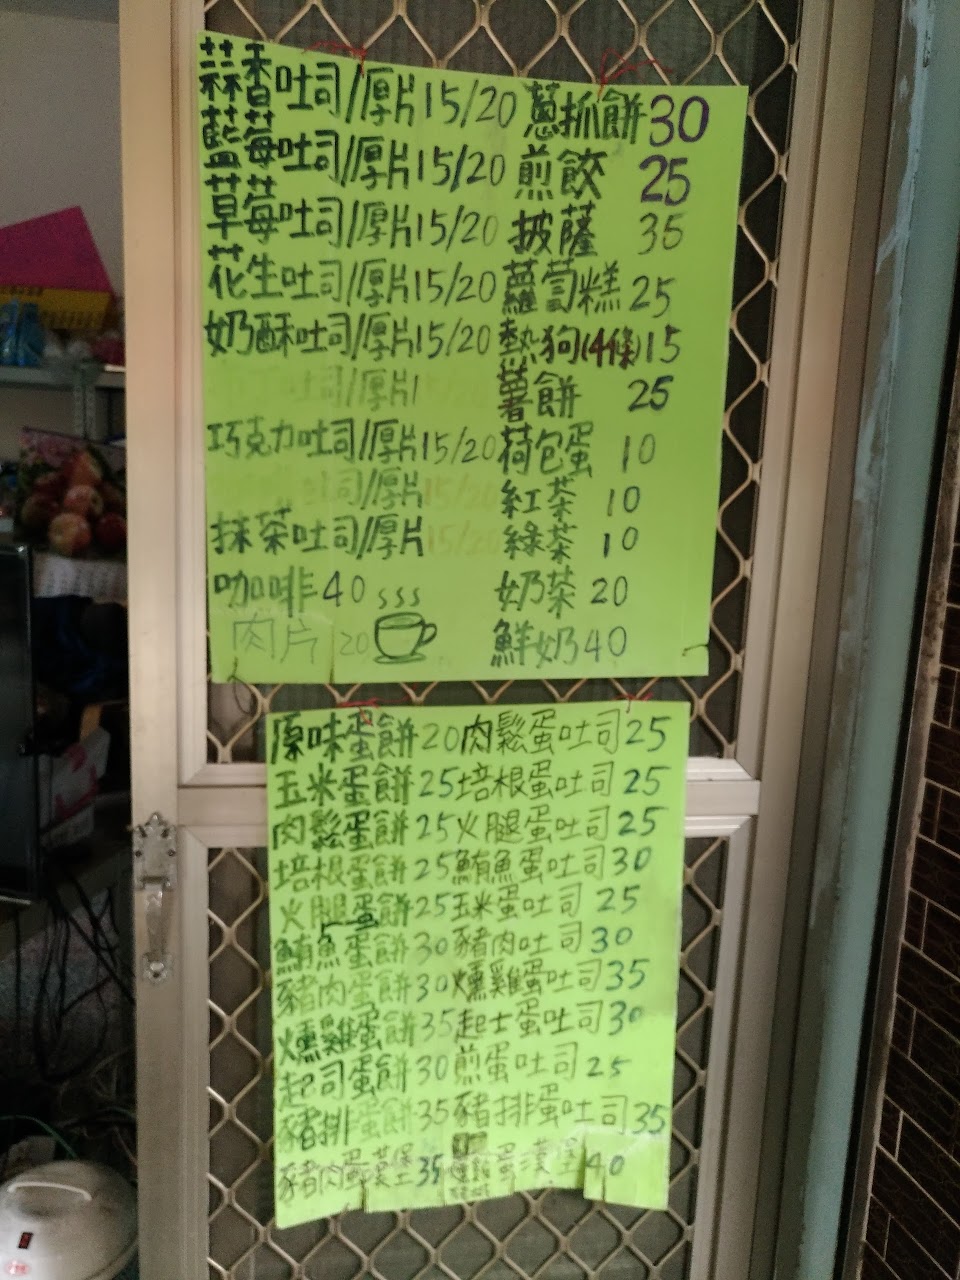 蒜香吐司/厚片15/20 蔥抓餅30
藍莓吐司/厚片15/20 煎餃 25
草莓吐司/厚片15/20 披薩 35
花生吐司/厚片15/20 蘿蔔糕25
奶酥吐司/厚片15/20 熱狗(4條)15
吐司/厚片1 薯餅 25
巧克力吐司/厚片15/20 荷包蛋 10
司/厚片15/20 紅茶 10
抹茶吐司/厚片15/20 綠茶 10
咖啡40 奶茶20
肉片 20 鮮奶40
原味蛋餅20 肉鬆蛋吐司25
玉米蛋餅25 培根蛋吐司25
肉鬆蛋餅25 火腿蛋吐司25
培根蛋餅25 鮪魚蛋吐司30
火腿蛋餅25 玉米蛋吐司25
鮪魚蛋餅30 豬肉吐司30
豬肉蛋餅30 燻雞蛋吐司35
燻雞蛋餅35 起士蛋吐司30
起司蛋餅30 煎蛋吐司25
豬排蛋餅35 豬排蛋吐司35
豬肉蛋漢堡35 蛋漢堡40